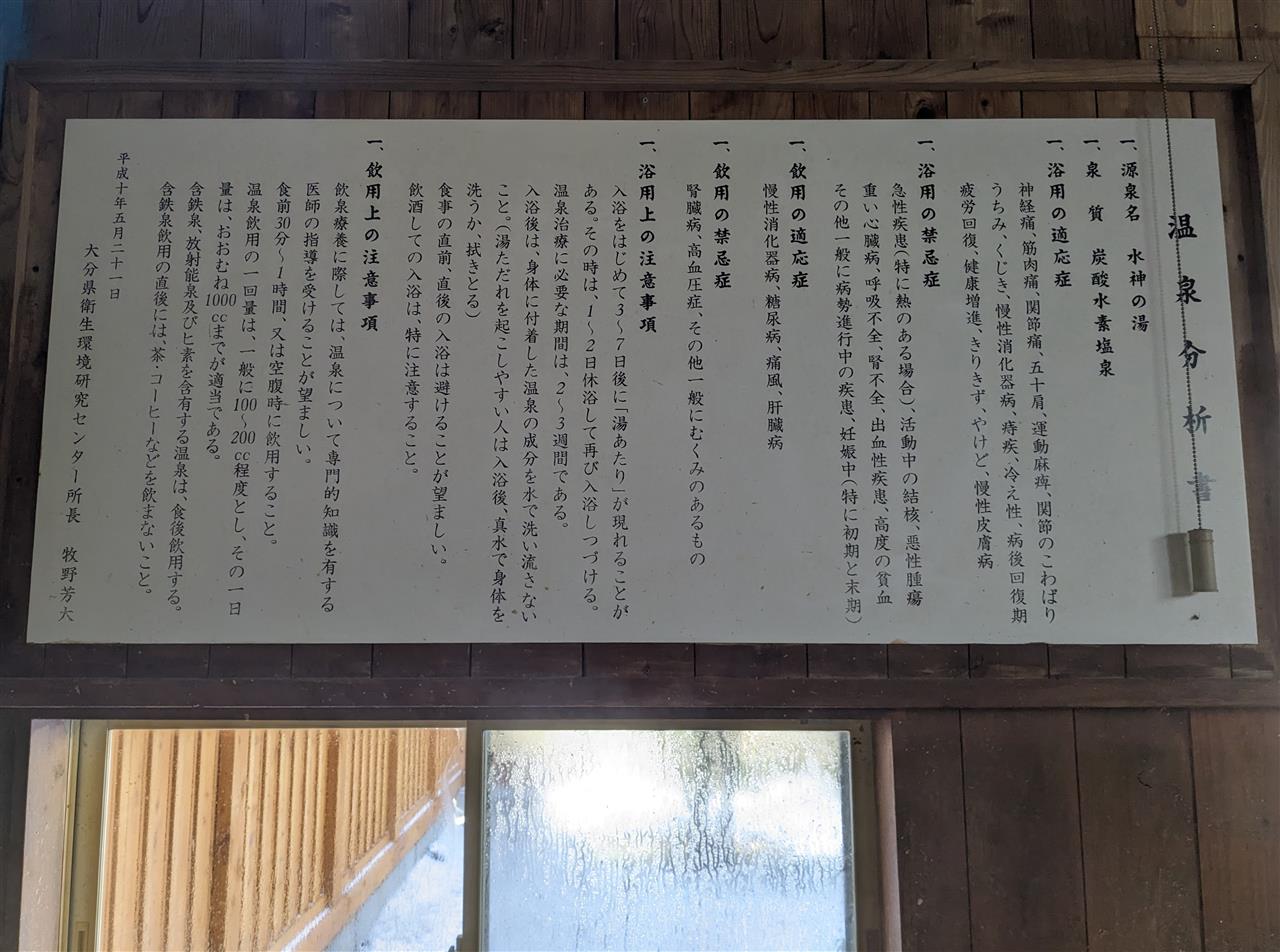 温泉分析書
一、源泉名　水神の湯
一、泉　質　炭酸水素塩泉
一、浴用の適応症
神経痛、筋肉痛、関節痛、五十肩、運動麻痺、関節のこわばり
うちみ、くじき、慢性消化器病、痔疾、冷え性、病後回復期
疲労回復、健康増進、きりきず、やけど、慢性皮膚病
一、浴用の禁忌症
急性疾患(特に熱のある場合)、活動中の結核、悪性腫瘍
重い心臓病、呼吸不全、腎不全、出血性疾患、高度の貧血
その他一般に病勢進行中の疾患、妊娠中(特に初期と末期)
一、飲用の適応症
慢性消化器病、糖尿病、痛風、肝臓病
一、飲用の禁忌症
腎臓病、高血圧症、その他一般にむくみのあるもの
一、浴用上の注意事項
入浴をはじめて3～7日後に「湯あたり」が現れることが
ある。その時は、1～2日休浴して再び入浴しつづける。
温泉治療に必要な期間は、2～3週間である。
入浴後は、身体に付着した温泉の成分を水で洗い流さない
こと。(湯ただれを起こしやすい人は入浴後、真水で身体を
洗うか、拭きとる)
食事の直前、直後の入浴は避けることが望ましい。
飲酒しての入浴は、特に注意すること。
一、飲用上の注意事項
飲泉療養に際しては、温泉について専門的知識を有する
医師の指導を受けることが望ましい。
食前30分～1時間、又は空腹時に飲用すること。
温泉飲用の一回量は、一般に100～200cc程度とし、その一日
量は、おおむね1000ccまでが適当である。
含鉄泉、放射能泉及びヒ素を含有する温泉は、食後飲用する。
含鉄泉飲用の直後には、茶・コーヒーなどを飲まないこと。
平成十年五月二十一日
大分県衛生環境研究センター所長　牧野芳大